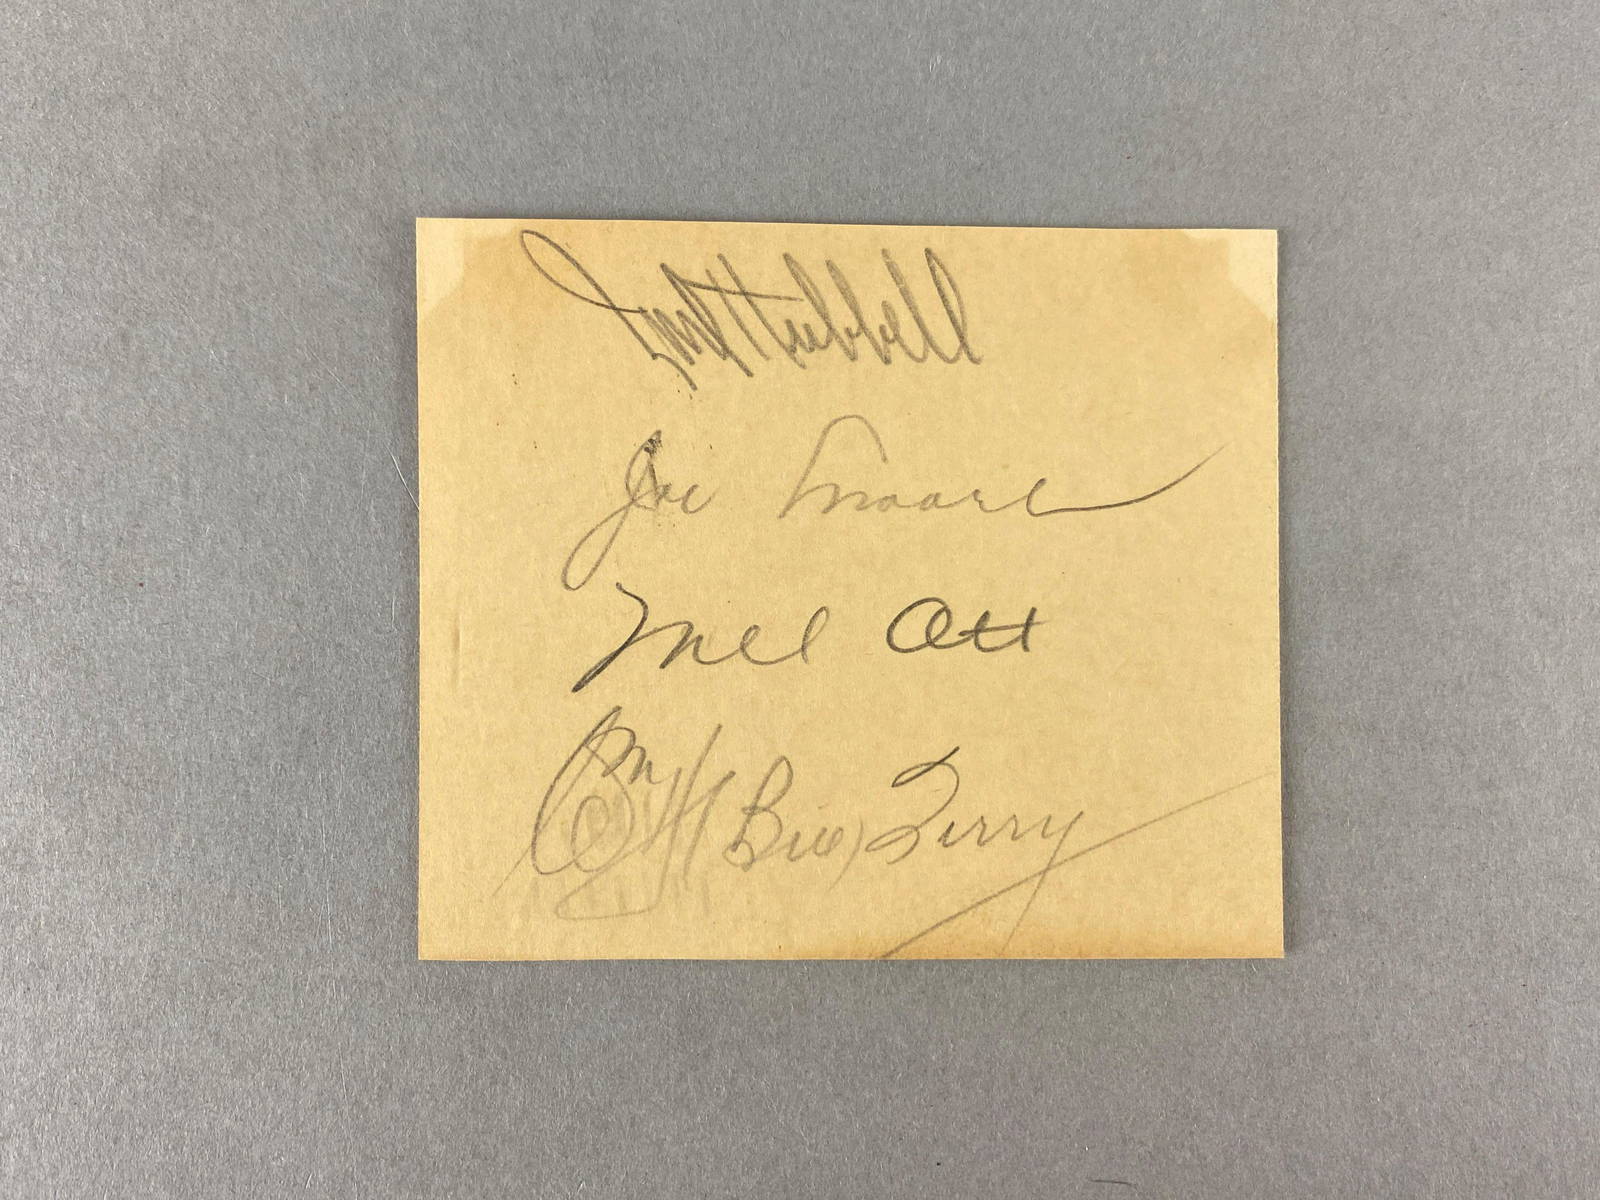 Hubbell
Joe Moore
Mel Ott
Wm H Bill Terry